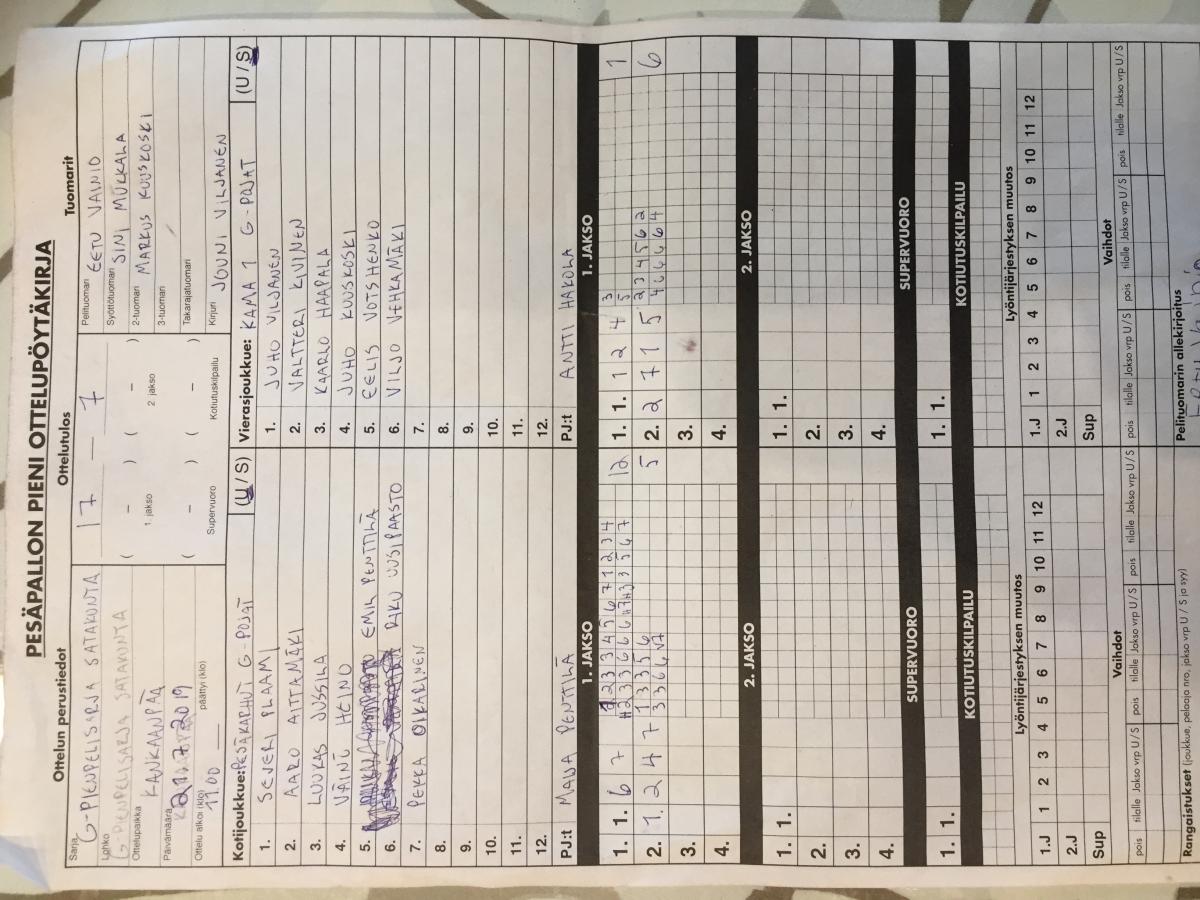 PESÄPALLON PIENI OTTELUPÖYTÄKIRJA
Ottelun perustiedot
Sarja G-PIENPELISARJA SATAKUNTA
Lohko G-PIENPELISARJA SATAKUNTA
Ottelupaikka KANKAANPÄÄ
Päivämäärä 21.7.2019
Ottelu alkoi (klo) 11.00 päättyi (klo)
Ottelutulos
17 — 7
( – ) ( – )
1. jakso 2. jakso
( – ) ( – )
Supervuoro Kotiutuskilpailu
Tuomarit
Pelituomari EETU VAINIO
Syöttötuomari SINI MÜKKALA
2-tuomari MARKUS KUUSKOSKI
3-tuomari
Takarajatuomari
Kirjuri JOUNI VILJANEN
Kotijoukkue: PESÄKARHUT G-POJAT (U/S)
1. SEVERI PLAAMI
2. AARO AITTAMÄKI
3. LUUKAS JUSSILA
4. VÄINÖ HEINO
5. EMIL PENTTILÄ
6. RIKU UUSIPAASTO
7. PEKKA OIKARINEN
8.
9.
10.
11.
12.
PJ:t MAIJA PENTTILÄ
Vierasjoukkue: KAMA 1 G-POJAT (U/S)
1. JUHO VILJANEN
2. VALTTERI KIVINEN
3. KAARLO HAAPALA
4. JUHO KUUSKOSKI
5. EELIS VOTSHENKO
6. VILJO VEHKAMÄKI
7.
8.
9.
10.
11.
12.
PJ:t ANTTI HAKOLA
1. JAKSO 1. JAKSO
1. 1. 6 7 12
1. 1. 1 2 4 1
2. 1. 2 4 7 5
2. 2 7 1 5 6
3. 3.
4. 4.
2. JAKSO 2. JAKSO
1. 1. 1. 1.
2. 2.
3. 3.
4. 4.
SUPERVUORO SUPERVUORO
1. 1. 1. 1.
KOTIUTUSKILPAILU KOTIUTUSKILPAILU
Lyöntijärjestyksen muutos Lyöntijärjestyksen muutos
1.J 1 2 3 4 5 6 7 8 9 10 11 12 1.J 1 2 3 4 5 6 7 8 9 10 11 12
2.J 2.J
Sup Sup
Vaihdot Vaihdot
pois tilalle Jakso vrp U/S pois tilalle Jakso vrp U/S pois tilalle Jakso vrp U/S pois tilalle Jakso vrp U/S pois tilalle Jakso vrp U/S pois tilalle Jakso vrp U/S
Rangaistukset (joukkue, pelaaja nro, jakso vrp U / S ja syy) Pelituomarin allekirjoitus